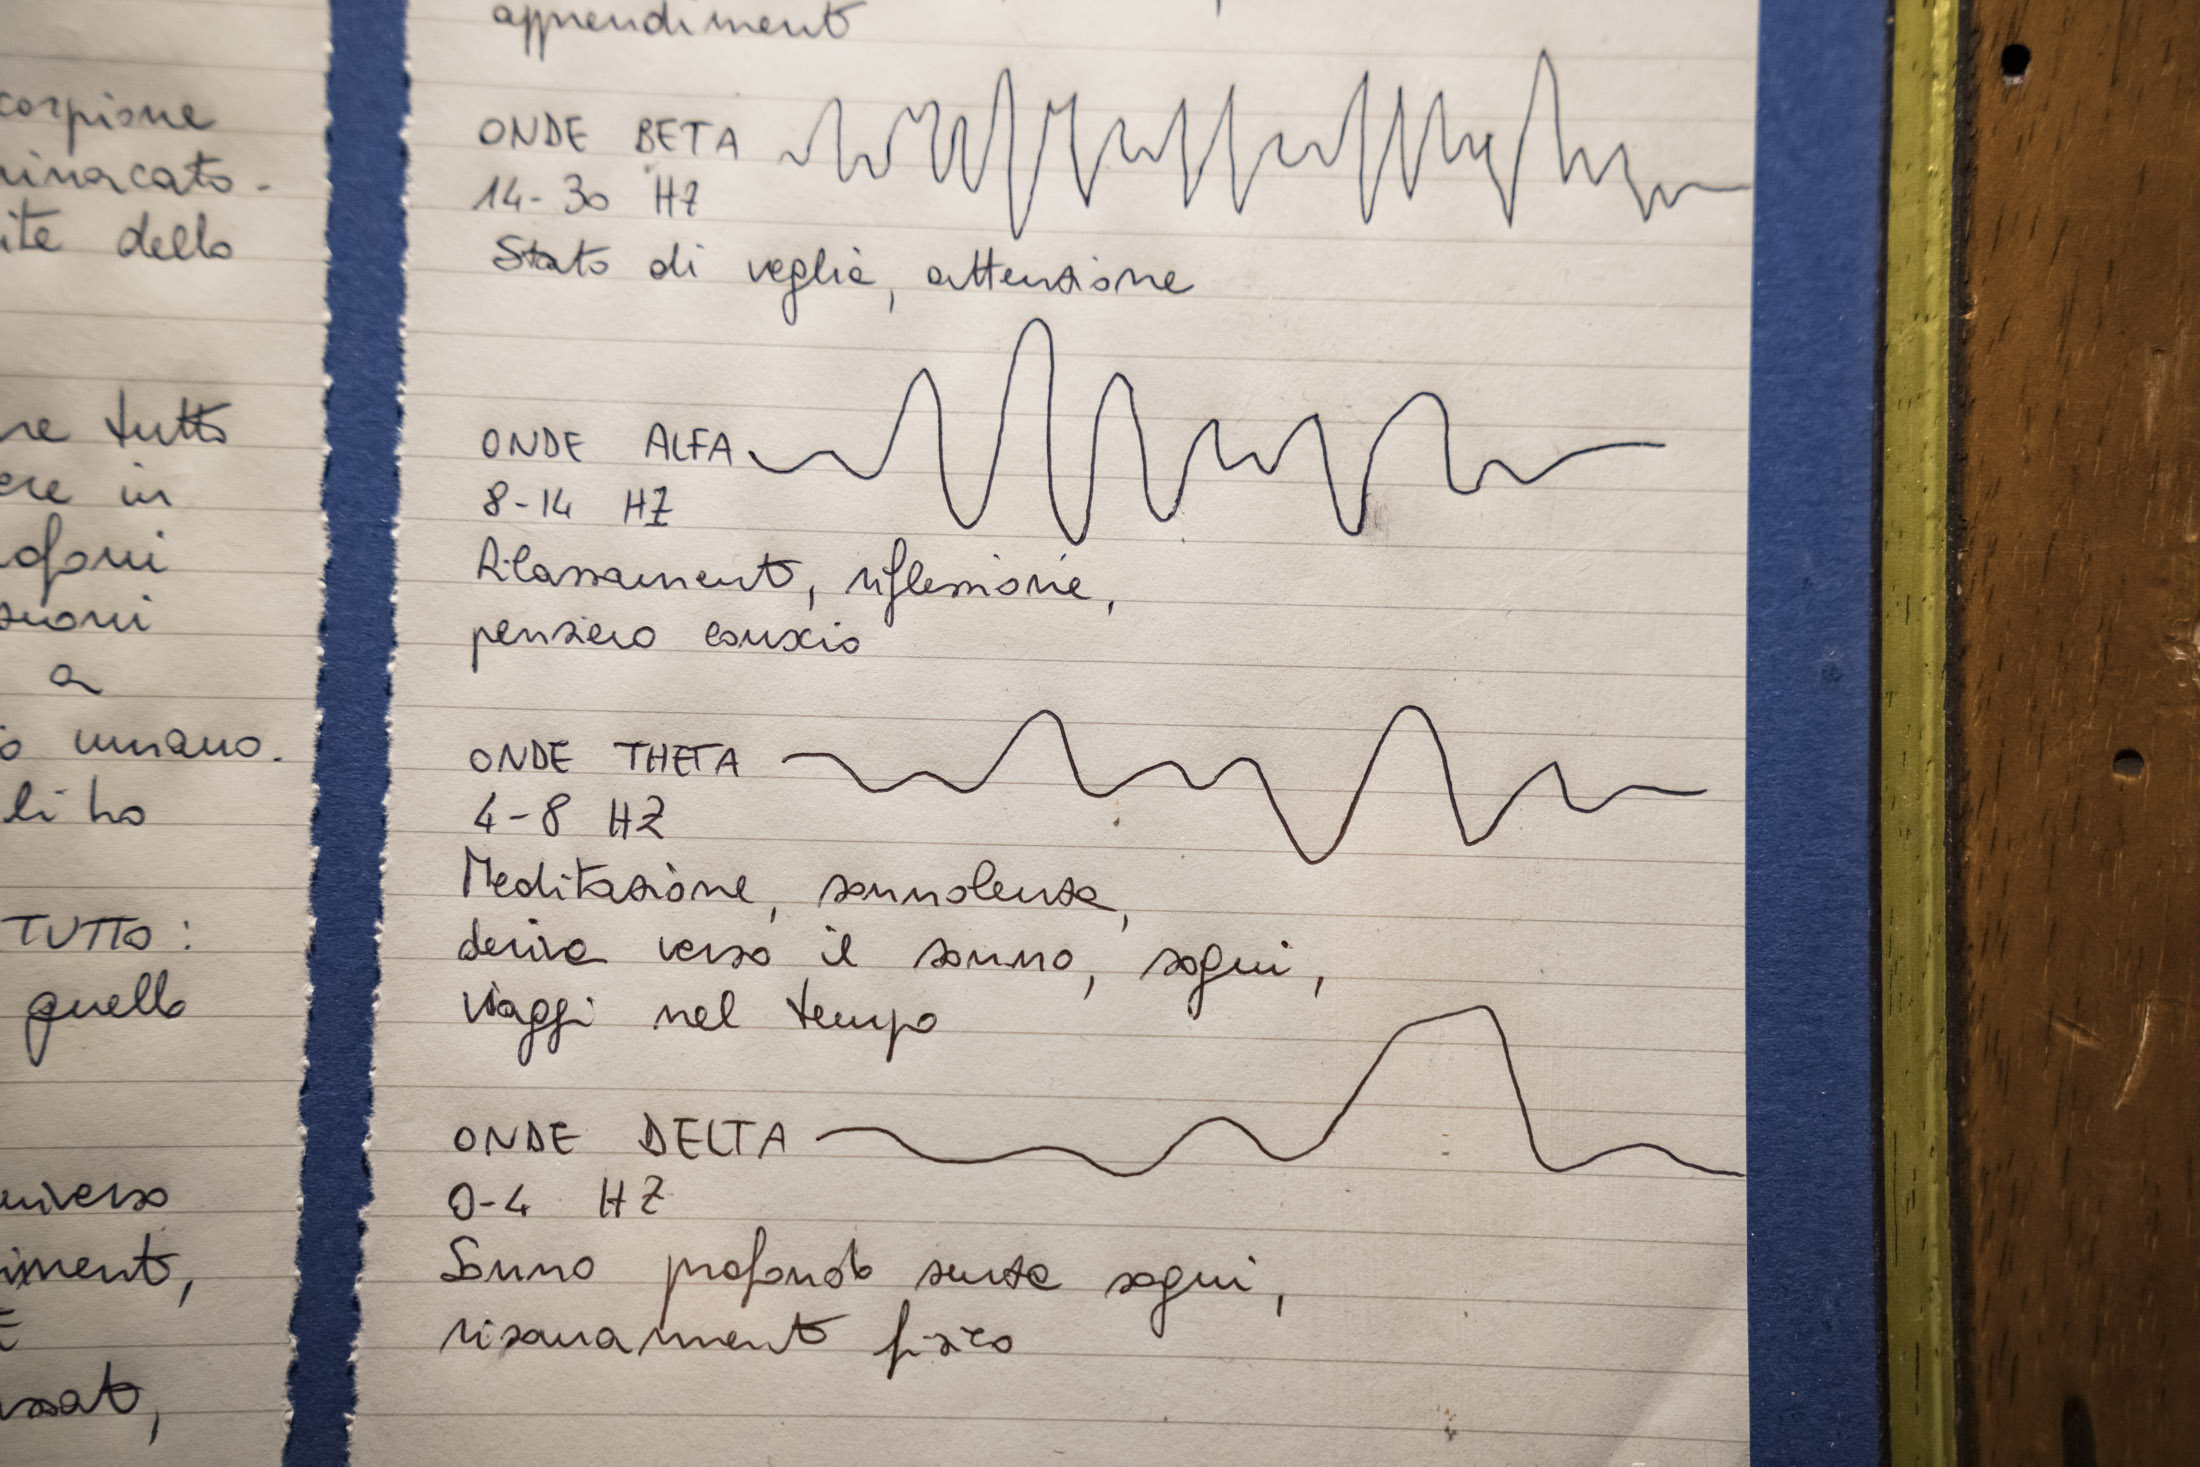 corpione
minacato.
ite dello
re tutto
ere in
ofoni
suoni
a
o umano.
li ho
TUTTO:
quello
niverso
imento,
ssato,
apprendimento
ONDE BETA
14-30 HZ
Stato di veglia, attenzione
ONDE ALFA
8-14 HZ
Rilassamento, riflessione,
pensiero conscio
ONDE THETA
4-8 HZ
Meditazione, sonnolenza,
deriva verso il sonno, sogni,
viaggi nel tempo
ONDE DELTA
0-4 HZ
Sonno profondo senza sogni,
risanamento fisico